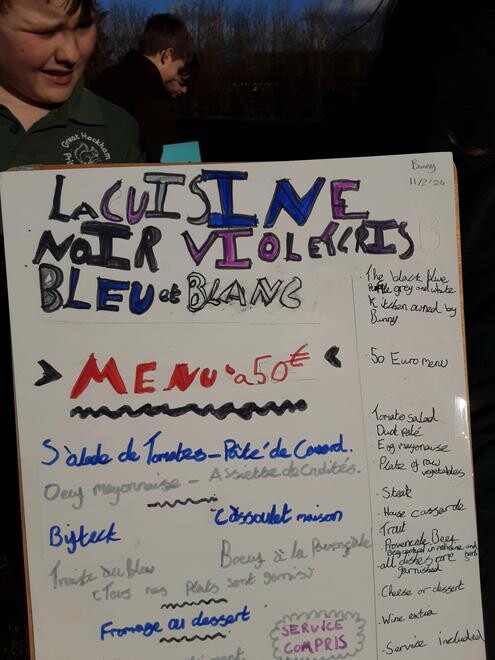 Great Horkham
Bunny
11/2/24
La CUISINE
NOIR VIOLET GRIS
BLEU et BLANC
MENU à 50€
S'alade de Tomates - Pâté de Canard.
Oeuf mayonnaise - Assiette de Crudités.
Cassoulet maison
Bifteck
Boeuf à la Provençale
Truite au bleu
(Tous nos plats sont garnis)
Fromage ou dessert
SERVICE
COMPRIS
The black blue
Purple grey and white
Kitchen owned by
Bunny
50 Euro menu
Tomato salad
Duck Paté
Egg mayonaise
Plate of raw
vegetables
Steak
House casserole
Trout
Provencale Beef
all dishes are
garnished
Cheese or dessert
Wine extra
Service included